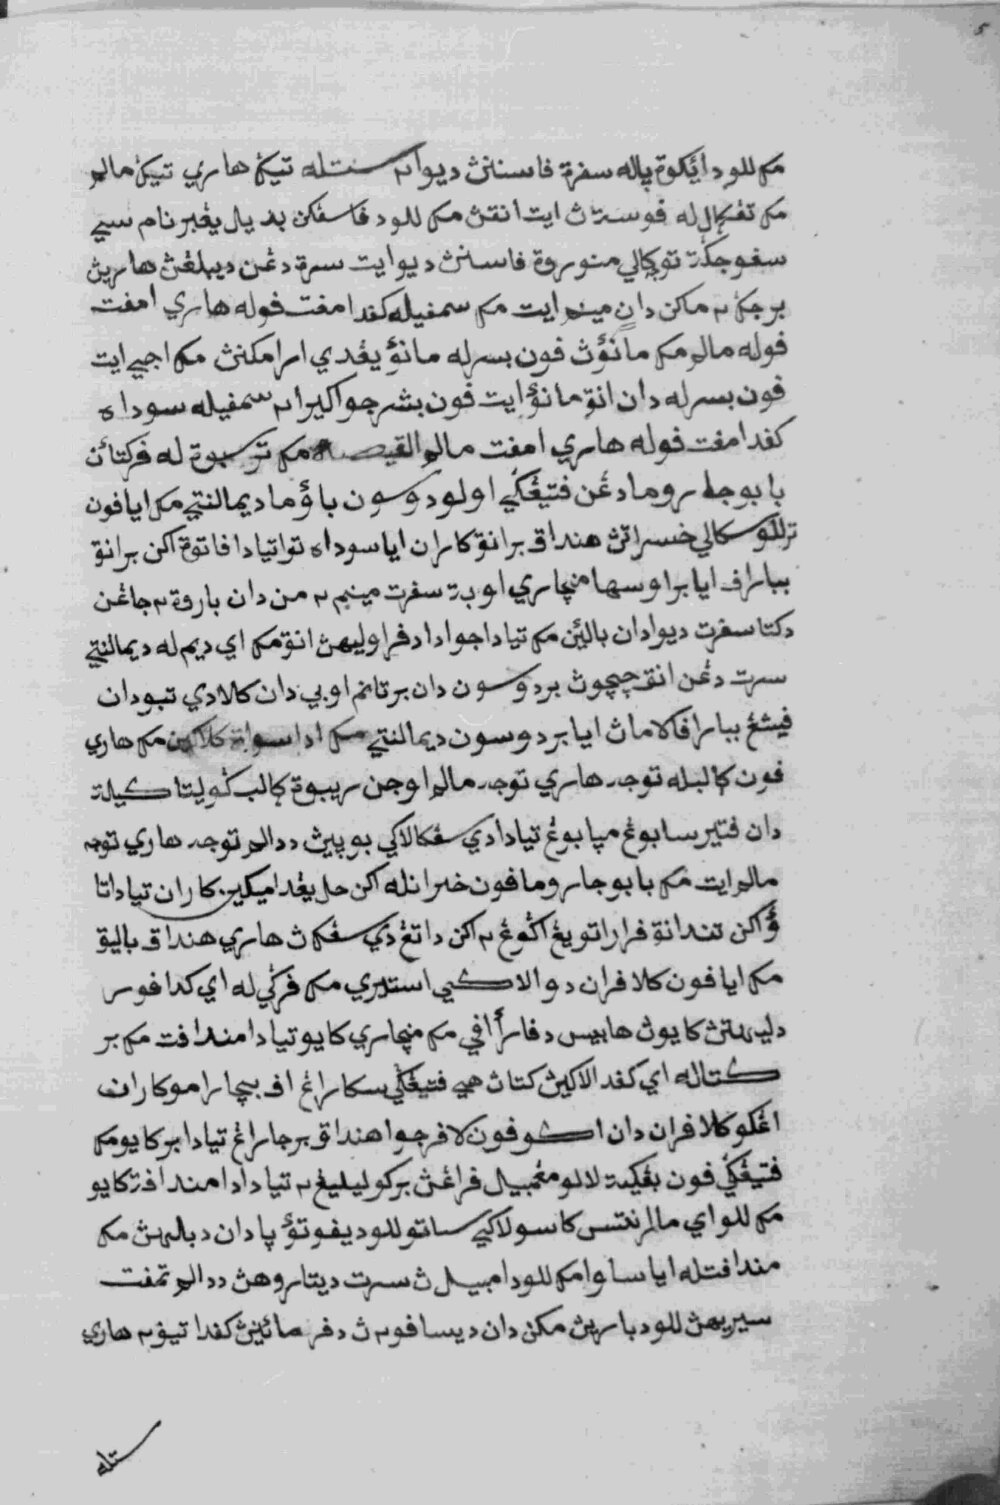 مک للو دأيکوة ياله سفرة فاستنڽ ديوانه ستله تيݢ هاري تيݢ مالم
مک تڠݢال له فوستڽ ايت انقڽ مک للود فاسڠکن بديل يڠبرنام سي
سفوجکت توجه کالي منوروة فاسنڽ ديوايت سرة دڠن ديبلڠڽ هاريڽ
برجݢ٢ ماکن دان مينم ايت مک سمفيله کفد امفت فوله هاري امفت
فوله مالم مک مانوءڽ فون بسرله مانوء يڠدي امرامکنڽ مک اجي ايت
فون بسرله دان انق مانوء ايت فون بشرجوا کيرا٢ سمفيله سوداه
کفد امفت فوله هاري امفت مالم القصه مک ترسبوة له فرکتاءن
با بوجڠ روما دڠن فتيڠݢي اولو دوسون باؤما ديمالنتي مک ايا فون
ترللو سکالي خسراتڽ هنداق برانق کارن ايا سوداه توا تيادا فاتوة اکن برانق
ببراف ايا براوسها منچاري اوبة سفرت مينم ٢ من دان باروة ٢ جاڠن
دکتا سفرت ديوا دان باليئن مک تيادا جوا دادفراوليهڽ انق مک اي ديم له ديمالنتي
سرت دڠن انق چوچوڽ بردوسون دان برتانم اوبي دان کلادي تبو دان
فيسڠ ببراف لاماڽ ايا بردوسون ديمالنتي مک ادا سواة کلاکين مک هاري
فون کالبله توجه هاري توجه مالم اوجن ريبوة کالب ݢوليتا کيلت
دان فتير سابوڠ مپابوڠ تيادا دي سڠکالاکي بوڽيڽ ددالم توجه هاري توجه
مالم ايت مک با بوجڠ روما فون خيرانله اکن حل يڠدميکين کارن تيادا تا
ؤ اکن تندانة فرارا تو يڠ اݢوڠ ٢ اکن داتڠ دي سڠک ڽ هاري هنداق باليق
مک ايا فون کلافران دوا لاکي استري مک فرݢي له اي کدافور
دليهتڽ کايوڽ هابيس دفاراافي مک منچاري کايو تيادا منداڤت مک بر
کتاله اي کفد لاکيڽ کتاڽ هي فتيڠݢي سکارڠ اف بيچارامو کارن
اڠکو کلافران دان اکو فون لافر جوا هنداق برجارڠ تيادا بر کايو مک
فتيڠݢي فون بڠکيت لالو مڠمبيل فراڠڽ برکوليليڠ ٢ تيادا دا منداڤت کايو
مک للو اي مالنتس کاسولاکي ساتو للو ديفوتوء پا دان دبالهڽ مک
منداڤتله ايا ساوا مک للو دامبيل ڽ سرت ديتاروهڽ ددالم تمفت
سيريهڽ للو دباريڽ مکن دان ديسافو ٢ ڽ دفر مائينڽ کفدا تيف ٢ هاري
ستله